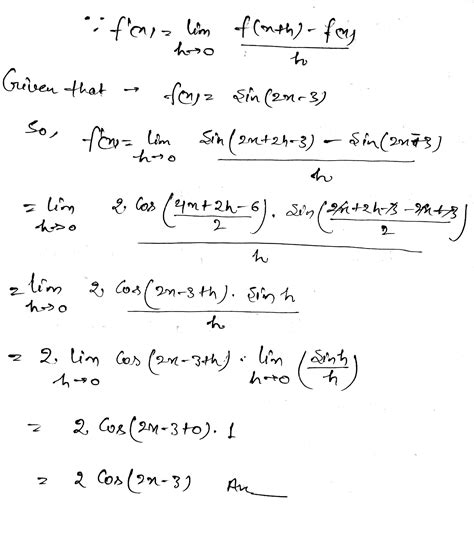 ∵ f'(x) = lim h→0 f(x+h) - f(x) / h
Given that → f(x) = sin(2x-3)
So, f'(x) = lim h→0 sin(2x+2h-3) - sin(2x-3) / h
= lim h→0 2 cos(4x+2h-6 / 2) . sin(2x+2h-3-2x+3 / 2) / h
= lim h→0 2 cos(2x-3+h) . sin h / h
= 2. lim h→0 cos(2x-3+h) . lim h→0 (sin h / h)
= 2 cos(2x-3+0) . 1
= 2 cos(2x-3) An